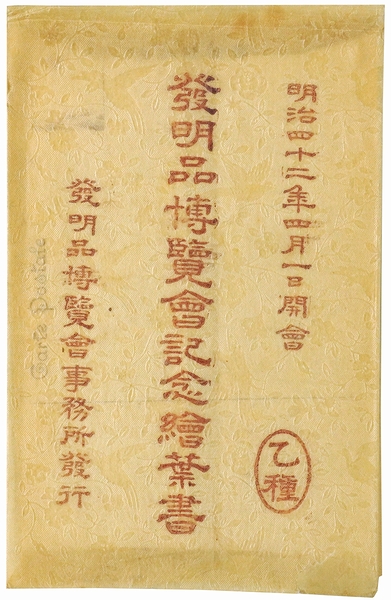 明治四十二年四月一日開會
發明品博覽會記念繪葉書
乙種
發明品博覽會事務所發行
Carte Postale